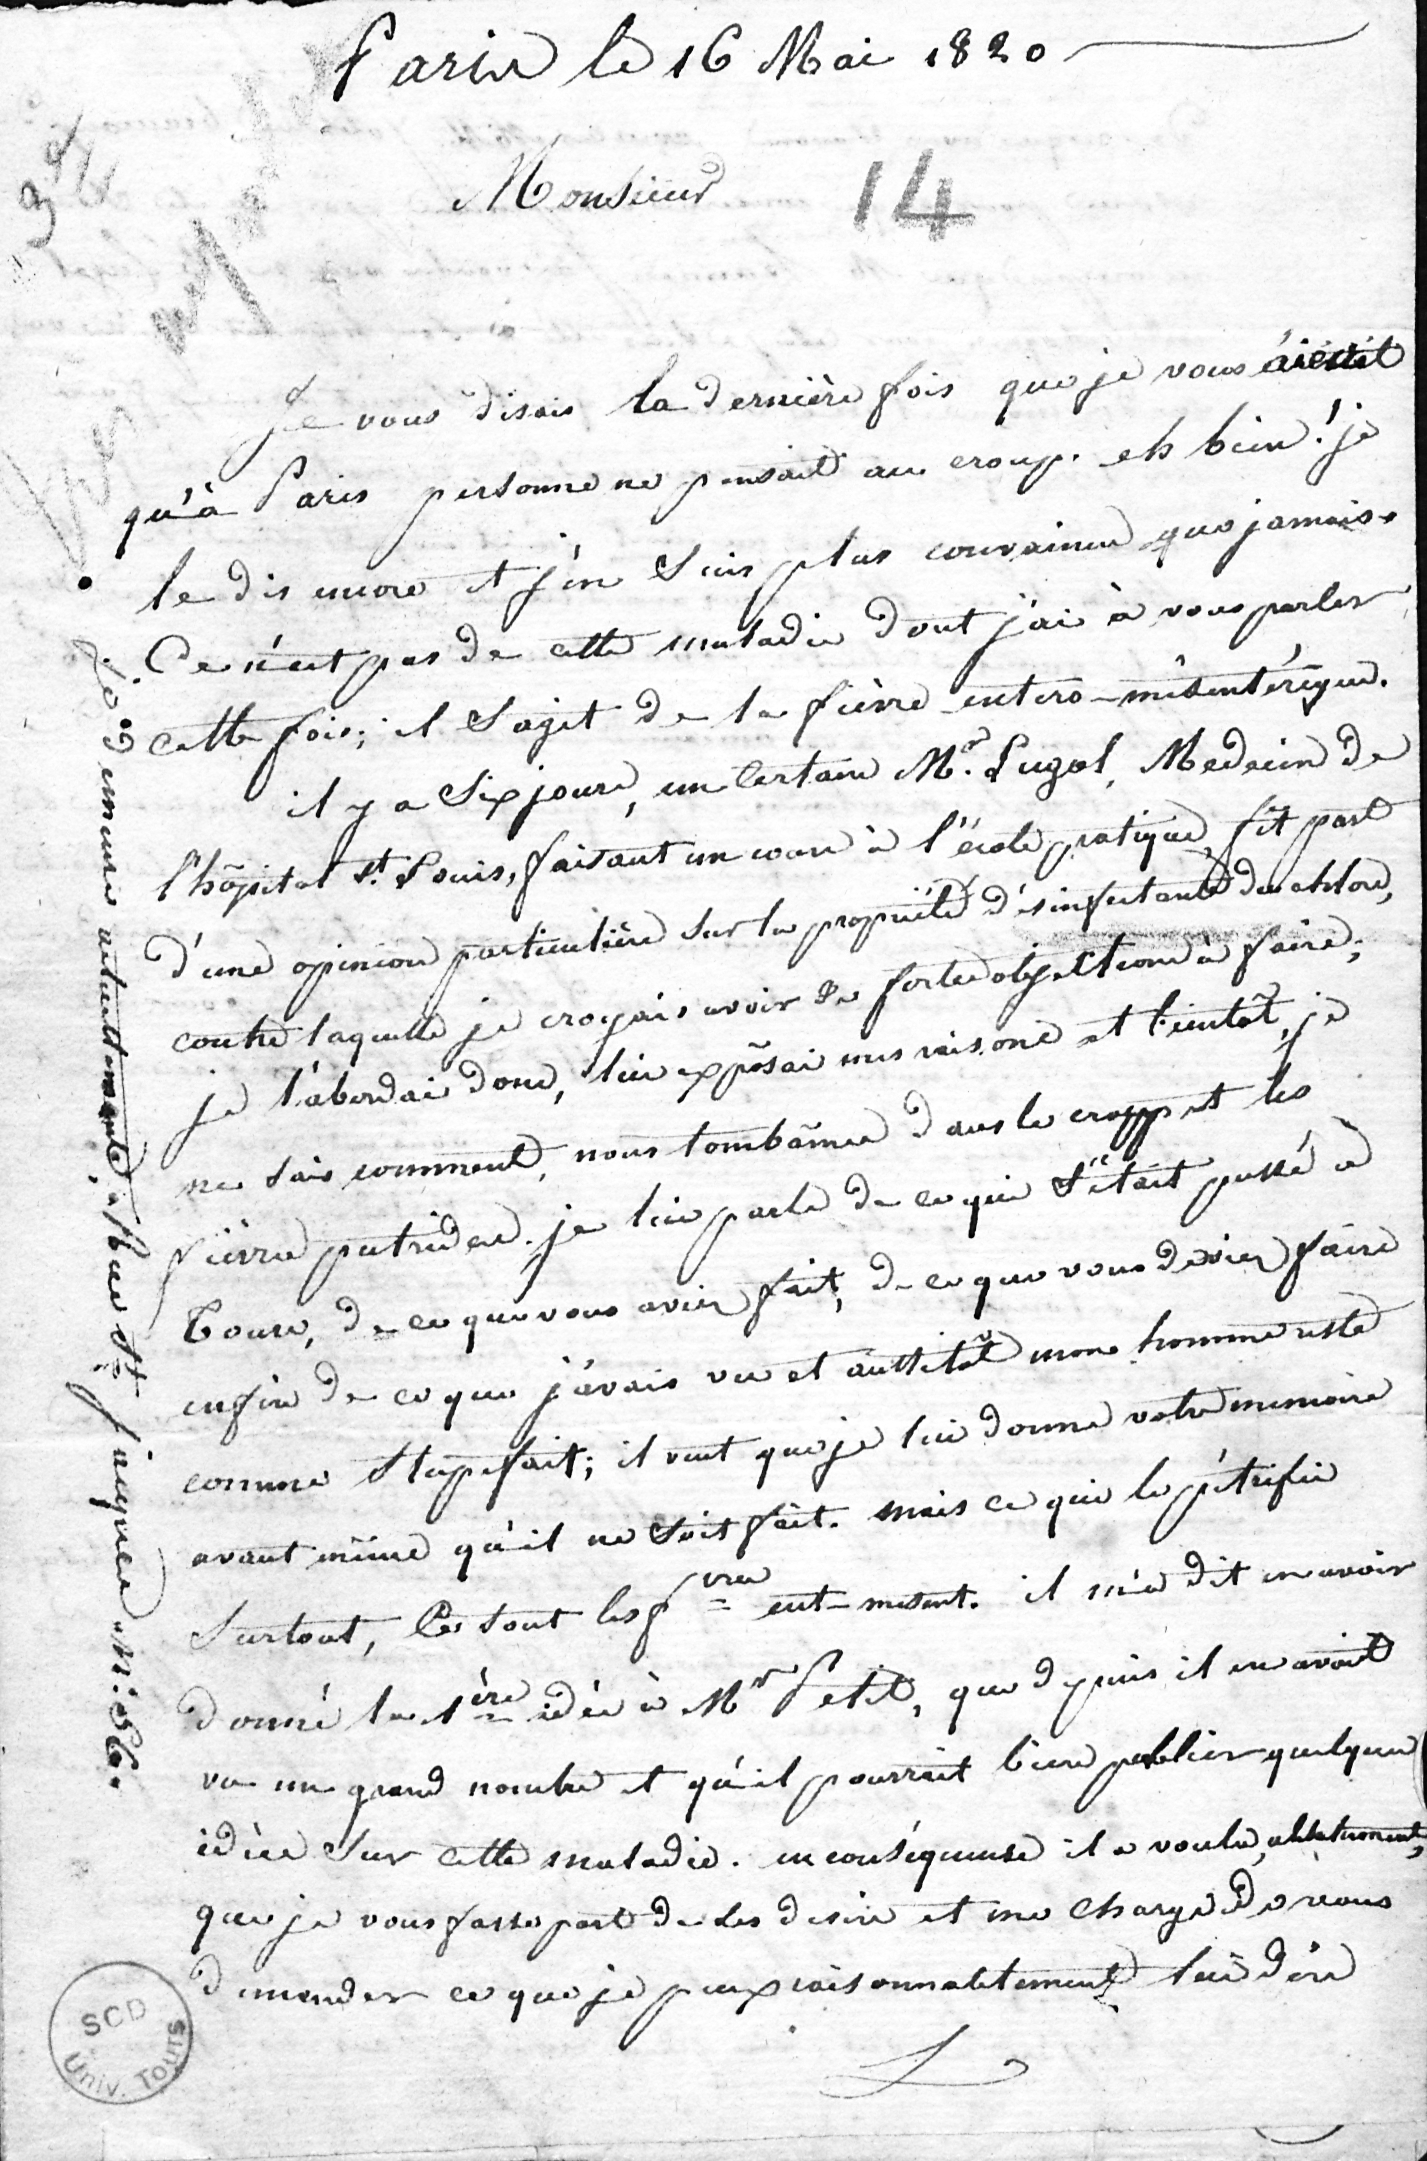 Paris le 16 Mai 1820
Monsieur
14
Je vous disais la dernière fois que je vous écrivit
qu'à Paris personne ne pensait au croup. eh bien! je
le dis encore et j'en suis plus convaincu que jamais.
Ce n'est pas de cette maladie dont j'ai à vous parler
cette fois; il s'agit de la fièvre entero-mésentérique.
il y a six jours, un certain Mr. Lugol, Medecin de
l'hôpital St. Louis, faisant un cours à l'école pratique, fit part
d'une opinion particulière sur la propriété désinfectante du chlore,
contre laquelle je croyais avoir de fortes objections à faire;
je l'abordai donc, lui exposai mes raisons et bientôt, je
ne sais comment, nous tombâmes dans le croup et les
fièvres putrides. je lui parle de ce qui s'était passé à
Tours, de ce que vous aviez fait, de ce que vous deviez faire
enfin de ce que j'avais vu et aussitôt mon homme reste
comme stupefait; il veut que je lui donne votre memoire
avant même qu'il ne soit fait. mais ce qui le pétrifie
surtout, Ce sont les fvres ent-mesent. il m'a dit en avoir
donné la 1ère idée à Mr Petit, que depuis il en avait
vu un grand nombre et qu'il pourrait bien publier quelques
idées sur cette maladie. en conséquence il a voulu, absolument,
que je vous fasse part de ses desirs et me charge de vous
demander ce que je puis raisonnablement lui dire
je demeure actuellement, Rue St. jacques n°. 56.
SCD
Univ. Tours